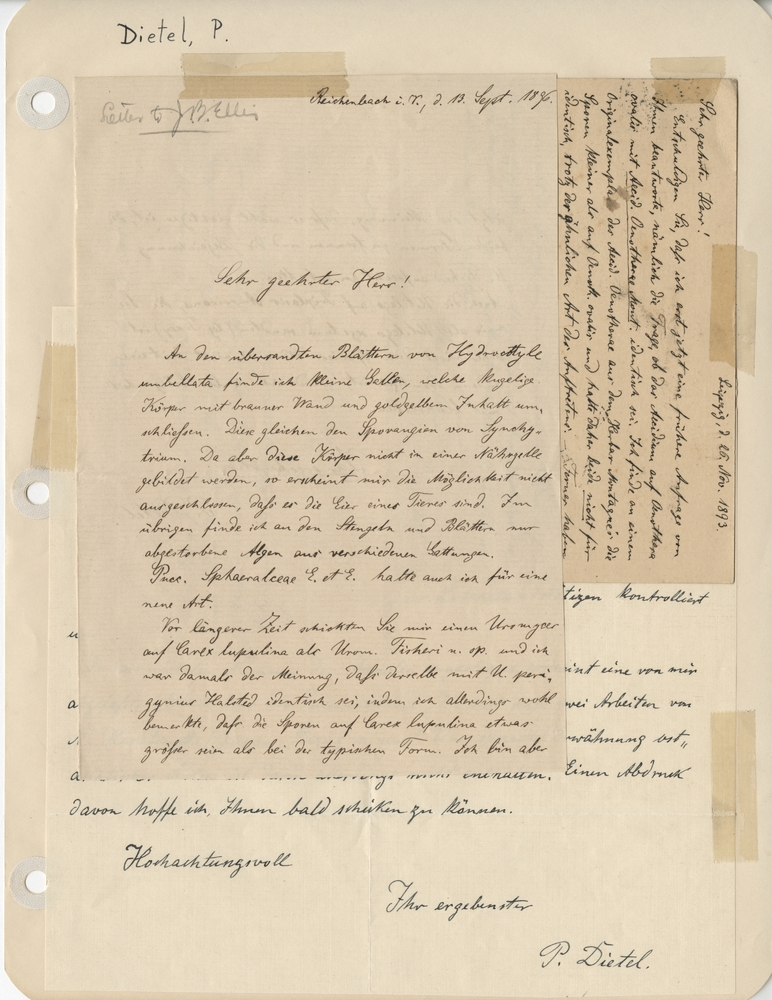 Dietel, P.
Letter to J. B. Ellis
Reichenbach i. V., d. 13. Sept. 1896.
Sehr geehrter Herr!
An den übersandten Blättern von Hydrocotyle
umbellata finde ich kleine Gallen, welche kugelige
Körper mit brauner Wand und goldgelbem Inhalt um-
schließen. Diese gleichen den Sporangien von Synchy-
trium. Da aber diese Körper nicht in einer Nährzelle
gebildet werden, so erscheint mir die Möglichkeit nicht
ausgeschlossen, daß es die Eier eines Tieres sind. Im
übrigen finde ich an den Stengeln und Blättern nur
abgestorbene Algen aus verschiedenen Gattungen.
Pucc. Sphaeralceae E. et E. halte auch ich für eine
neue Art.
Vor längerer Zeit schickten Sie mir einen Uromyces
auf Carex lupulina als Urom. Fisheri n. sp. und ich
war damals der Meinung, daß derselbe mit U. peri-
gynius Halsted identisch sei, indem ich allerdings wohl
bemerkte, daß die Sporen auf Carex lupulina etwas
größer seien als bei der typischen Form. Ich bin aber
Leipzig, d. 26. Nov. 1893.
Sehr geehrter Herr!
Entschuldigen Sie, daß ich erst jetzt eine frühere Anfrage von
Ihnen beantworte, nämlich die Frage, ob das Aecidium auf Oenothera
ovalis mit Aecid. Oenotherae Mont. identisch sei. Ich finde an einem
Originalexemplar der Aecid. Oenotherae aus dem Herbar Montagne's die
Sporen kleiner als auf Oenoth. ovalis und halte daher beide nicht für
identisch, trotz der ähnlichen Art des Auftretens. — Ferner haben
tigen kontrolliert
eint eine von mir
wei Arbeiten von
rwähnung ost-
Einen Abdruck
davon hoffe ich, Ihnen bald schicken zu können.
Hochachtungsvoll
Ihr ergebenster
P. Dietel.